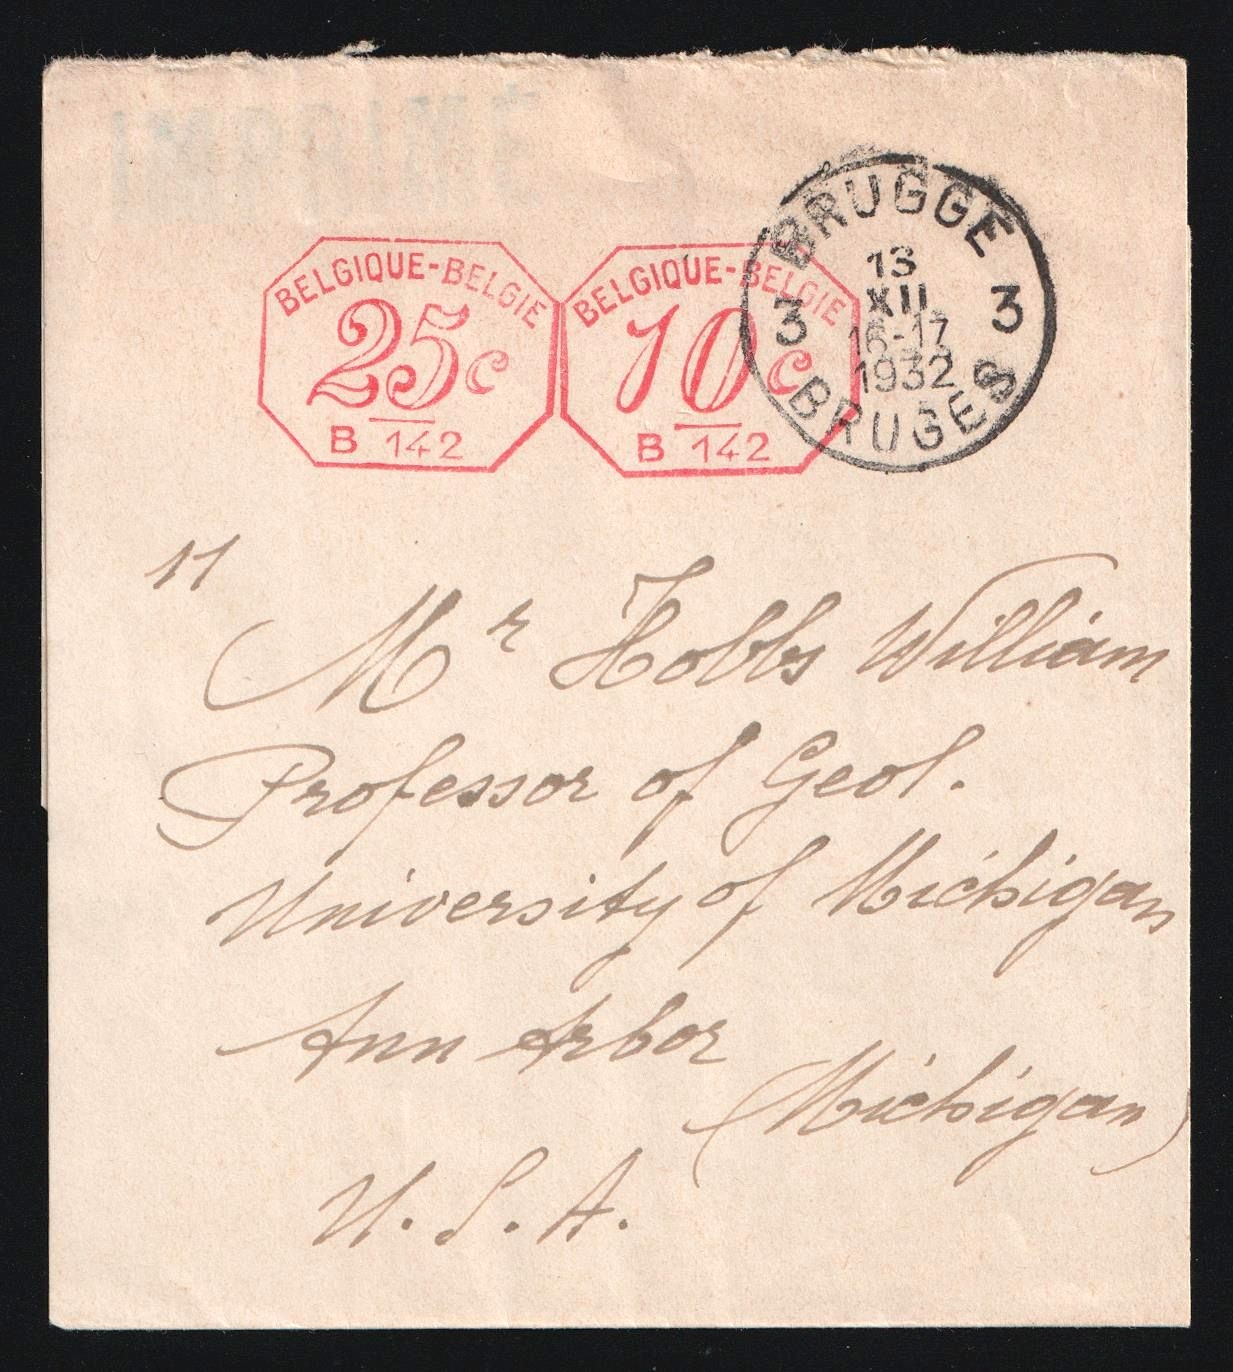 IMPRIMÉ
BELGIQUE-BELGIE
25c
B 142
BELGIQUE-BELGIE
10c
B 142
BRUGGE
13
XII
16-17
1932
3 3
BRUGES
11
Mr Hobbs William
Professor of Geol.
University of Michigan
Ann Arbor
(Michigan)
U.S.A.